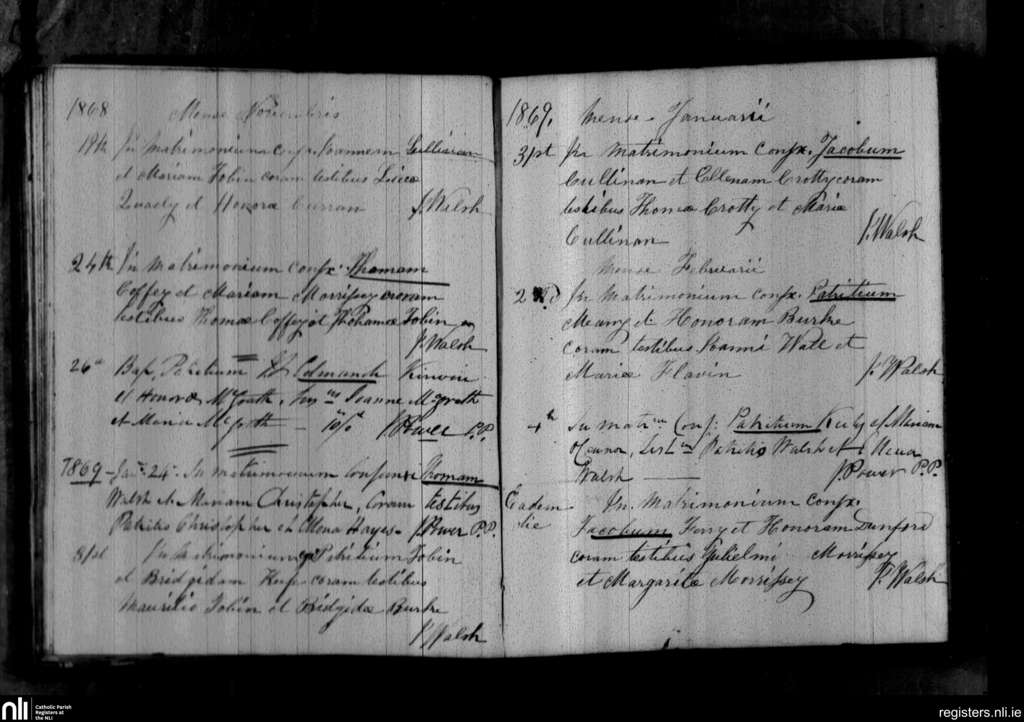 1868 Mense Novembris
19th In Matrimonium conjx. Joannem Sullivan
et Mariam Tobin coram testibus
et Honora Curran J. Walsh
24th In Matrimonium conjx. Thomam
Coffey et Mariam Morrissey coram
testibus Thoma Coffey et Johanna Tobin
J. Walsh
26th Bap. Patritium Edmundi Kirwin
et Honora McGrath, Joanne McGrath
et Maria McGrath J Power P.P.
1869 - Jan. 24. In matrimonium Conjunxi Thomam
Walsh et Mariam Christopher, Coram testibus
Patritio Christopher et Ellena Hayes - J Power P.P.
31st In Matrimonium Patritium Tobin
et Bridgidam coram testibus
Mauritio Tobin et Bridgida Burke
J. Walsh
1869. Mense Januarii
31st In Matrimonium conjx. Jacobum
Cullinan et Ellenam Crotty coram
testibus Thoma Crotty et Maria
Cullinan J. Walsh
Mense Februarii
2nd In Matrimonium conjx. Patritium
Meany et Honoram Burke
coram testibus Joanni Wall et
Maria Flavin J. Walsh
4th In matrm Conj: Patritium et Mariam
Connor, Patritio Walsh et Ellena
Walsh J Power P.P.
Eadem In Matrimonium conjx.
die Jacobum et Honoram Dunford
coram testibus Gulielmi Morrissey
et Margarita Morrissey J. Walsh
nli Catholic Parish
Registers at
the NLI
registers.nli.ie